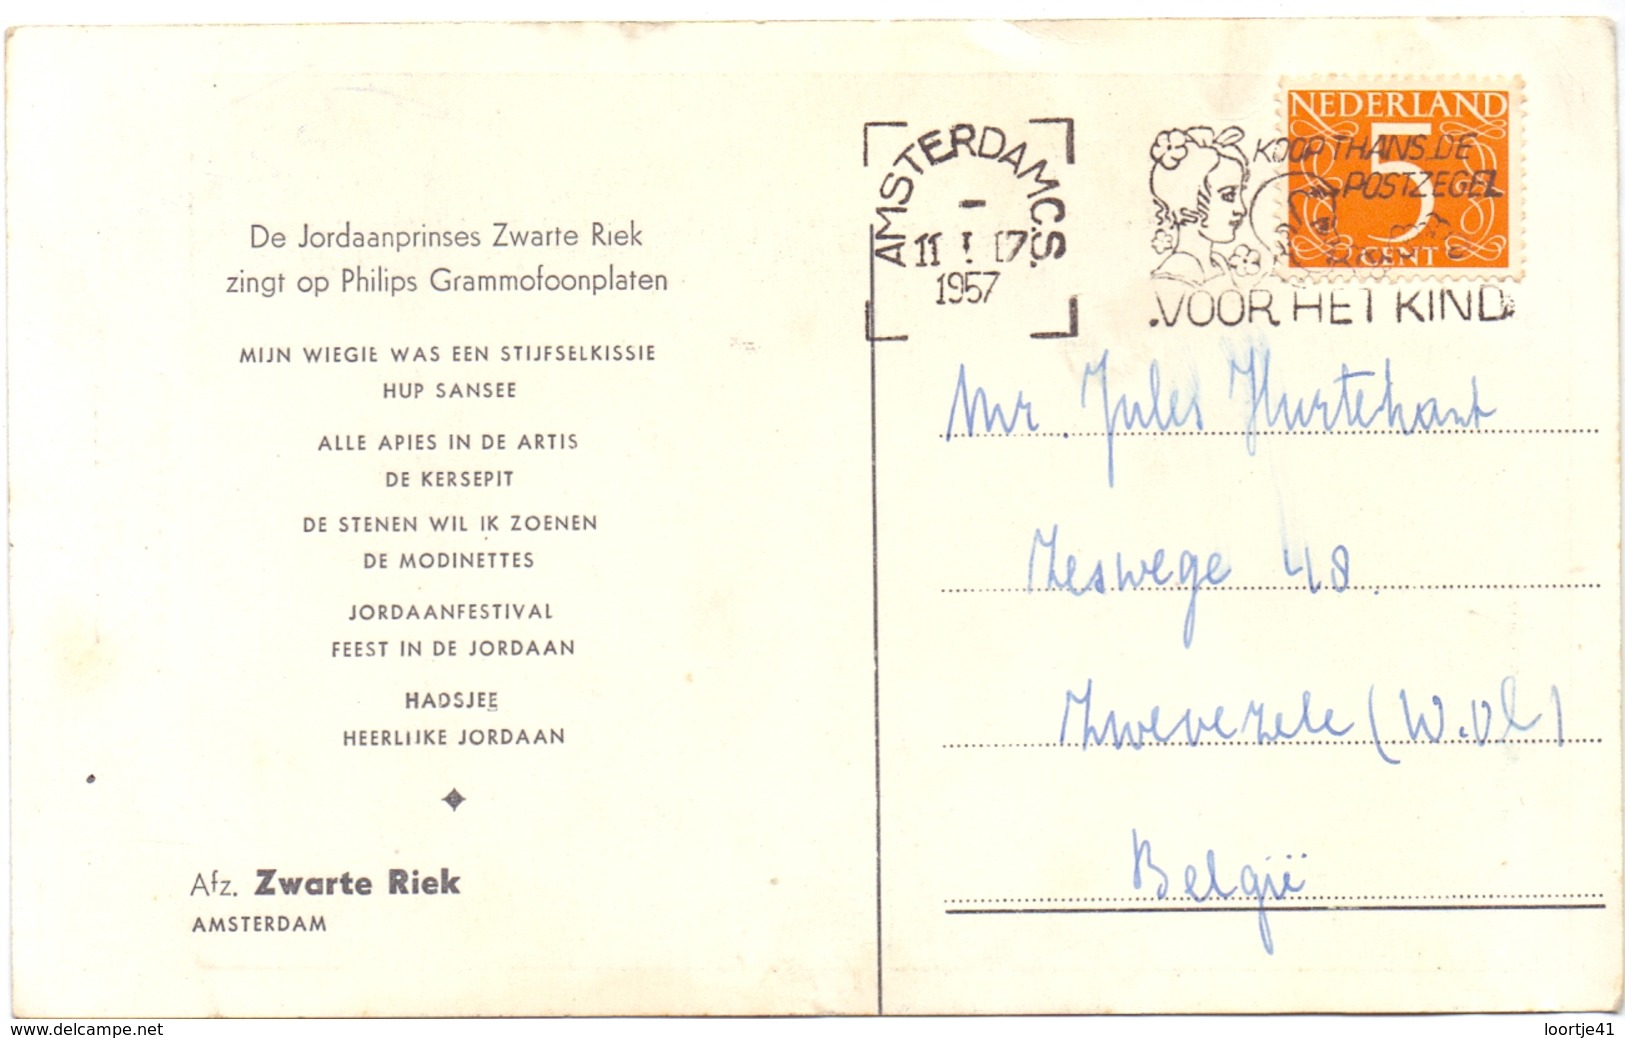 De Jordaanprinses Zwarte Riek
zingt op Philips Grammofoonplaten
MIJN WIEGIE WAS EEN STIJFSELKISSIE
HUP SANSEE
ALLE APIES IN DE ARTIS
DE KERSEPIT
DE STENEN WIL IK ZOENEN
DE MODINETTES
JORDAANFESTIVAL
FEEST IN DE JORDAAN
HADSJEE
HEERLIJKE JORDAAN
Afz. Zwarte Riek
AMSTERDAM
AMSTERDAM C.S.
1957
KOOP THANS DE
POSTZEGEL
VOOR HET KIND
NEDERLAND
5
CENT
Mr. Jules
Zeswege 48.
Zwevezele (W.Vl)
België
www.delcampe.net
loortje41